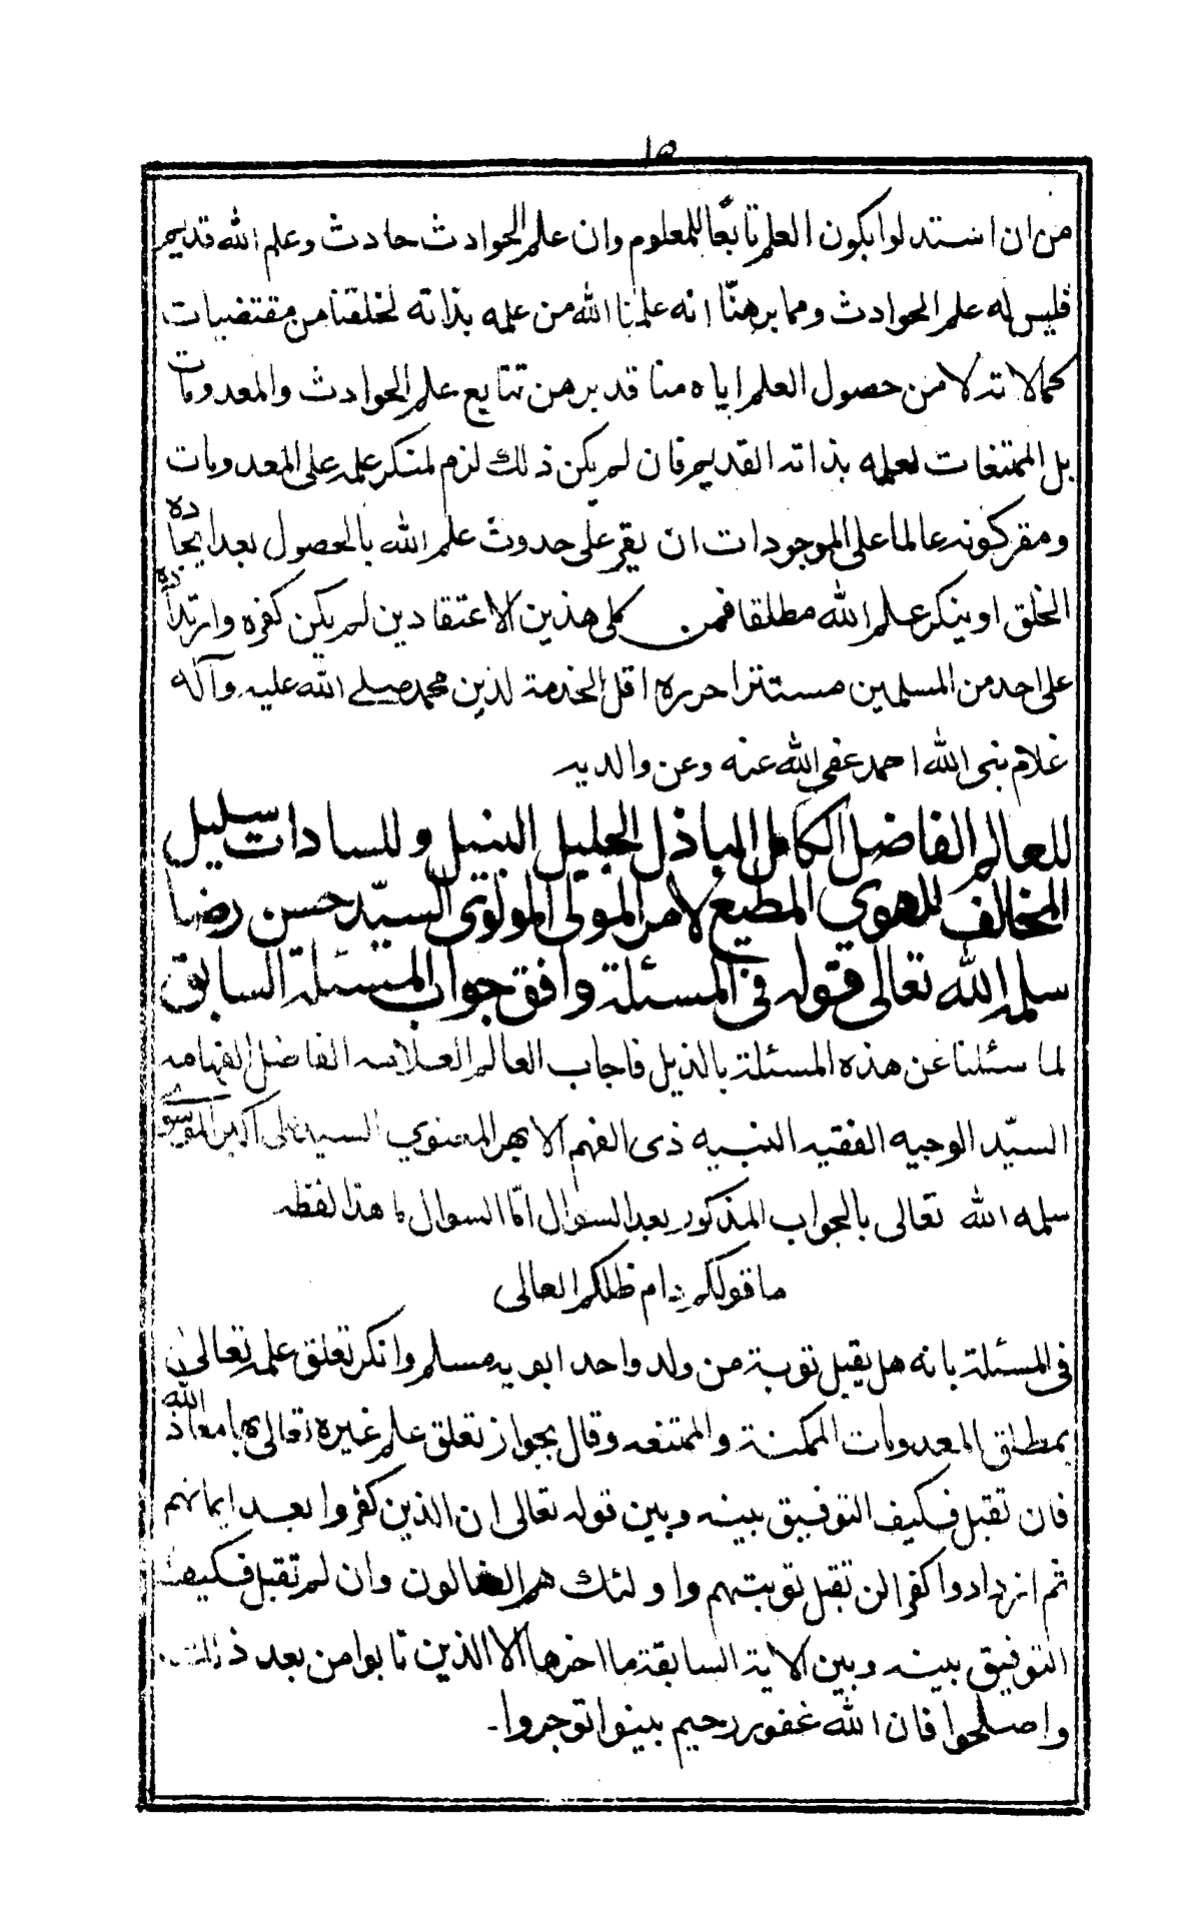 ١٥
من ان استدلوا بكون العلم تابعًا للمعلوم وان علم الحوادث حادث وعلم الله قديم
فليس له علم الحوادث ومما برهنّا انه علمنا الله من علمه بذاته لخلقنا من مقتضيات
كمالاته لا من حصول العلم اياه منا قد برهن تتابع علم الحوادث والمعدومات
بل الممتنعات لعلمه بذاته القديم فان لم يكن ذلك لزم لمنكر علمه على المعدومات
ومقر كونه عالما على الموجودات ان يقر على حدوث علم الله بالحصول بعد ايجاده
الخلق او ينكر علم الله مطلقا فمن كلى هذين الاعتقادين لم يكن كفره وارتداده
على احد من المسلمين مستترا حرره اقل الخدمة لدين محمد صلے الله عليه وآله
غلام نبى الله احمد عفى الله عنه وعن والديه
للعالم الفاضل الكامل الباذل الجليل النبيل وللسادات سليل
المخالف للهوى المطيع لامر المولى المولوى السيّد حسن رضا
سلمه الله تعالى قوله فى المسئلة وافق جواب المسئلة السابق
لما سئلنا عن هذه المسئلة بالذيل فاجاب العالم العلامه الفاضل الفهامه
السيّد الوجيه الفقيه النبيه ذى الفهم الابهر المعنوي السيد على اكبر الموسوے
سلمه الله تعالى بالجواب المذكور بعد السوال امّا السوال ما هذا لفظه
ما قولكم دام ظلكم العالى
فى المسئلة بانه هل يقبل توبة من ولد واحد ابويه مسلم وانكر تعلق علمه تعالى
بمطلق المعدومات الممكنة والممتنعه وقال بجواز تعلق علم غيره تعالى بها معاذ الله
فان تقبل فكيف التوفيق بينه وبين قوله تعالى ان الذين كفروا بعد ايمانهم
ثم ازدادوا كفرا لن تقبل توبتهم واولئك هم الضالون وان لم تقبل فكيف
التوفيق بينه وبين الاية السابقة ما اخرها الا الذين تابوا من بعد ذلك
واصلحوا فان الله غفور رحيم بينوا توجروا۔